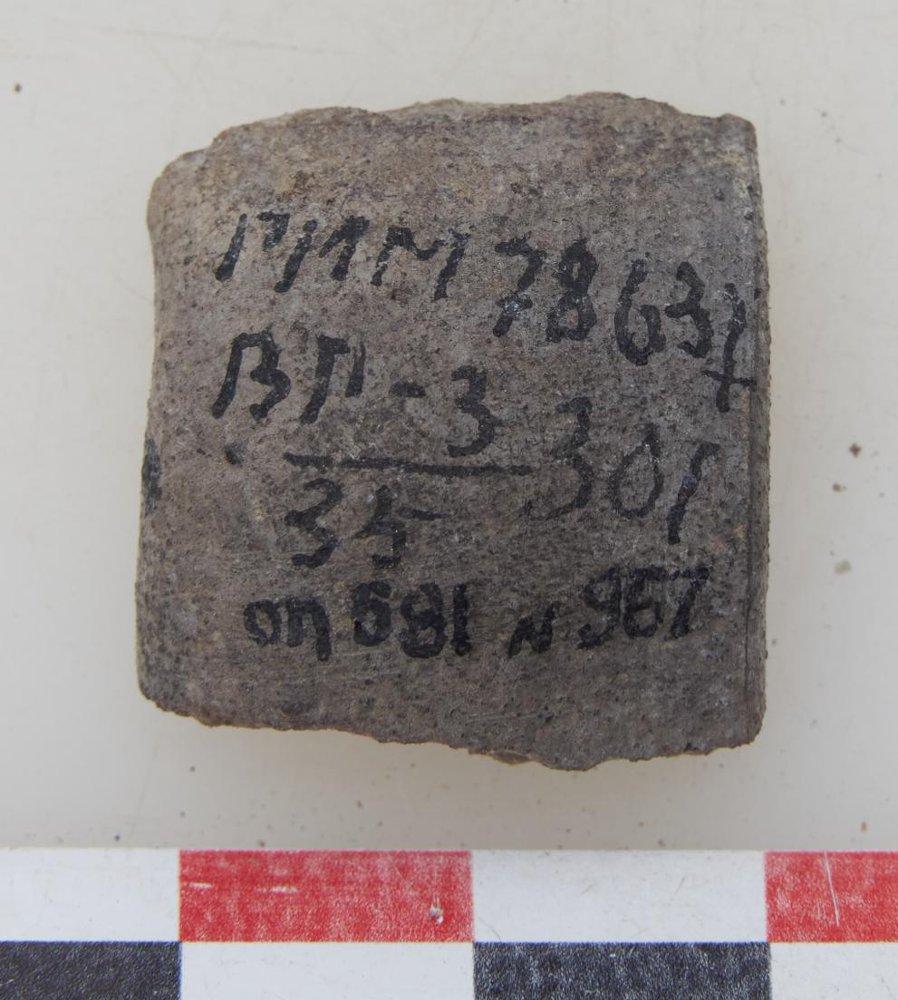 ГИМ 78631
ВГ-3
35 301
оп 681 N 967